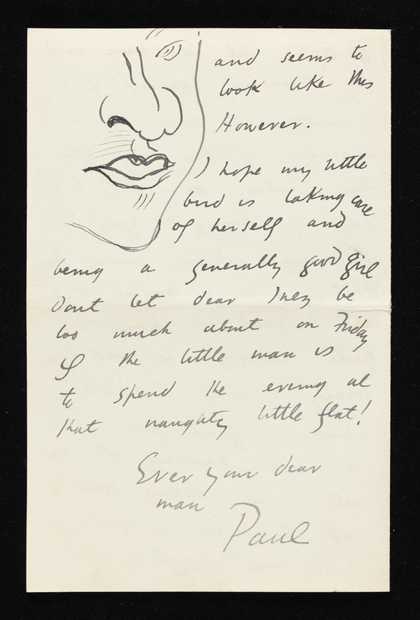 and seems to
look like this
However.
I hope my little
bird is taking care
of herself and
being a generally good girl
Dont let dear Inez be
too much about on Friday
If the little man is
to spend the evening at
that naughty little flat!
Ever your dear
man
Paul